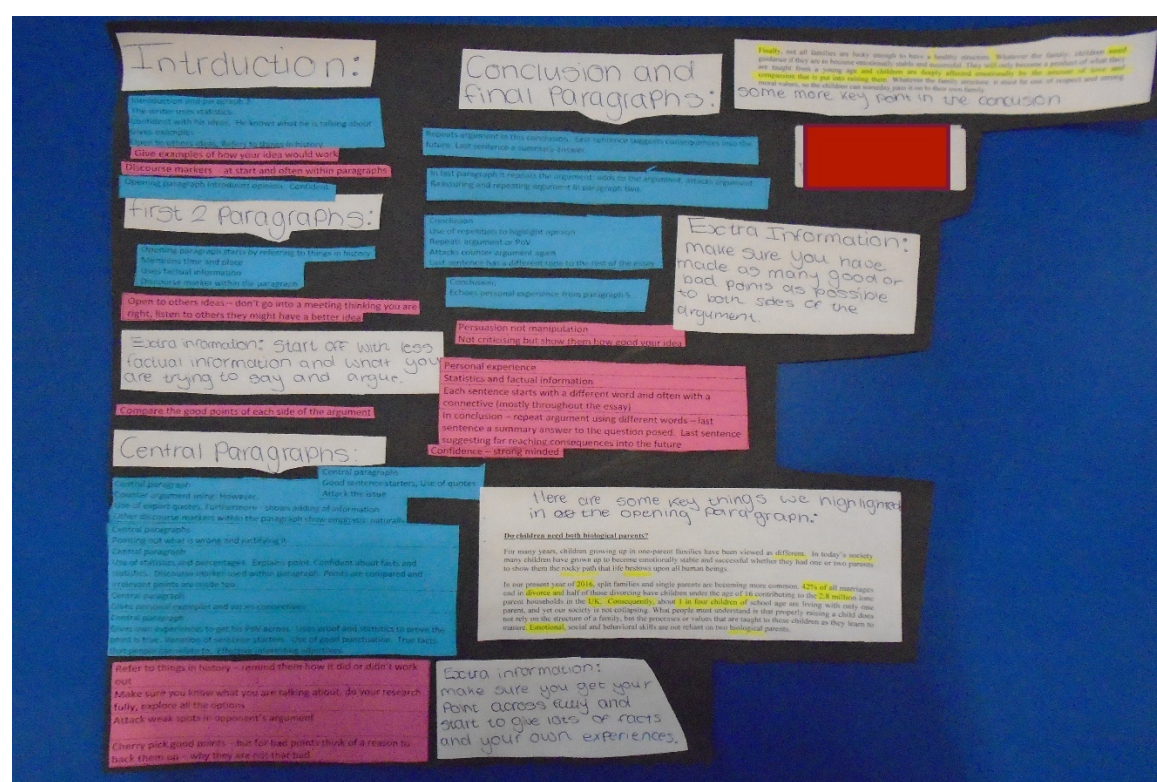 Introduction:
Introduction and paragraph 3
The writer uses statistics.
Confident with his ideas. He knows what he is talking about
Gives examples
Open to others ideas. Refers to things in history
Give examples of how your idea would work
Discourse markers - at start and often within paragraphs
Opening paragraph introduces opinion. Confident.
First 2 Paragraphs:
Opening paragraph starts by referring to things in history
Mentions time and place
Uses factual information
Discourse marker within the paragraph
Open to others ideas – don't go into a meeting thinking you are
right, listen to others they might have a better idea
Extra information: Start off with less
factual information and what you
are trying to say and argue.
Compare the good points of each side of the argument
Central Paragraphs:
Central paragraphs
Good sentence starters, Use of quotes
Attack the issue
Central paragraph
Counter argument using: However,
Use of expert quotes. Furthermore – shows adding of information
Other discourse markers within the paragraph show emphasis: naturally
Central paragraphs
Pointing out what is wrong and justifying it
Central paragraph
Use of statistics and percentages. Explains point. Confident about facts and
statistics. Discourse marker used within paragraph. Points are compared and
irrelevant points are made too.
Central paragraph
Gives personal examples and varies connectives
Central paragraph
Gives own experiences to get his PoV across. Uses proof and statistics to prove the
point is true. Variation of sentence starters. Use of good punctuation. True facts
that people can relate to. Effective
Refer to things in history – remind them how it did or didn't work
out
Make sure you know what you are talking about, do your research
fully, explore all the options
Attack weak spots in opponent's argument
Cherry pick good points – but for bad points think of a reason to
back them up – why they are not that bad
Conclusion and
final Paragraphs:
Repeats argument in this conclusion. Last sentence suggests consequences into the
future. Last sentence a summary answer.
In last paragraph it repeats the argument, adds to the argument, attacks argument
Reassuring and repeating argument in paragraph two.
Conclusion
Use of repetition to highlight opinion
Repeats argument or PoV
Attacks counter argument again
Last sentence has a different tone to the rest of the essay
Conclusion:
Echoes personal experience from paragraph 5
Persuasion not manipulation
Not criticising but show them how good your idea
Personal experience
Statistics and factual information
Each sentence starts with a different word and often with a
connective (mostly throughout the essay)
In conclusion – repeat argument using different words – last
sentence a summary answer to the question posed. Last sentence
suggesting far reaching consequences into the future
Confidence – strong minded
Finally, not all families are lucky enough to have a healthy structure. Whatever the family, children need
guidance if they are to become emotionally stable and successful. They will only become a product of what they
are taught from a young age and children are deeply affected emotionally by the amount of love and
compassion that is put into raising them. Whatever the family structure, it must be one of respect and strong
moral values, so the children can someday pass it on to their own family.
some more key point in the conclusion
Extra Information:
make sure you have
made as many good or
bad points as possible
to both sides of the
argument.
Here are some key things we highlighted
in the opening paragraph:
Do children need both biological parents?
For many years, children growing up in one-parent families have been viewed as different. In today's society
many children have grown up to become emotionally stable and successful whether they had one or two parents
to show them the rocky path that life bestows upon all human beings.
In our present year of 2016, split families and single parents are becoming more common. 42% of all marriages
end in divorce and half of those divorcing have children under the age of 16 contributing to the 2.8 million lone
parent households in the UK. Consequently, about 1 in four children of school age are living with only one
parent, and yet our society is not collapsing. What people must understand is that properly raising a child does
not rely on the structure of a family, but the processes or values that are taught to those children as they learn to
mature. Emotional, social and behavioral skills are not reliant on two biological parents.
Extra information:
make sure you get your
Point across fully and
start to give lots of facts
and your own experiences.